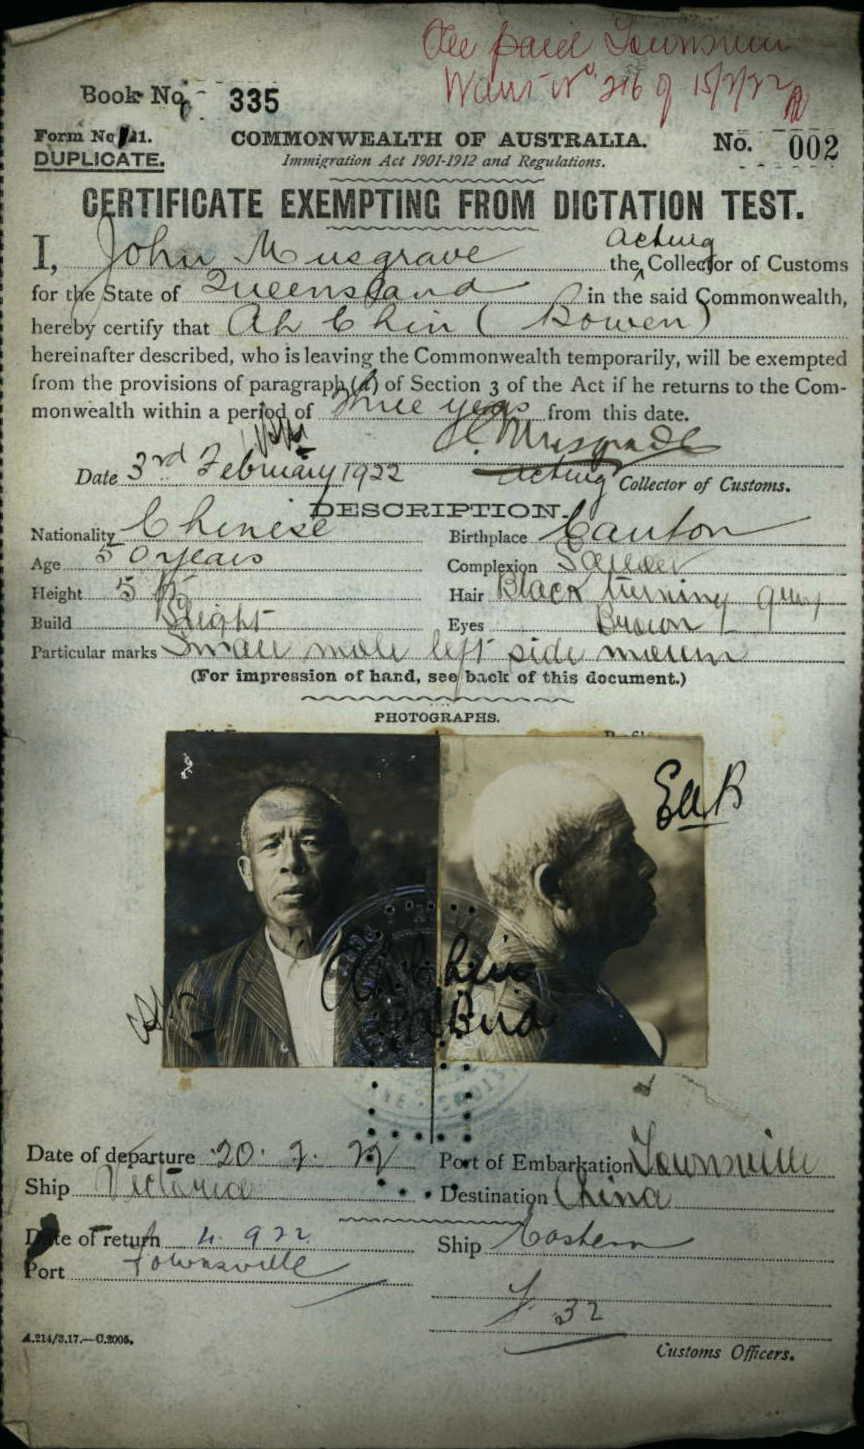 Fee paid Townsville
Warrt No 216 of 15/2/22
Book No. 335
Form No 21.
DUPLICATE.
COMMONWEALTH OF AUSTRALIA.
Immigration Act 1901-1912 and Regulations.
No. 002
CERTIFICATE EXEMPTING FROM DICTATION TEST.
I, John Musgrave the acting Collector of Customs
for the State of Queensland in the said Commonwealth,
hereby certify that Ah Chin (Bowen)
hereinafter described, who is leaving the Commonwealth temporarily, will be exempted
from the provisions of paragraph (a) of Section 3 of the Act if he returns to the Com-
monwealth within a period of three years from this date.
Musgrave
Date 3rd February 1922
acting Collector of Customs.
DESCRIPTION.
Nationality Chinese
Birthplace Canton
Age 50 years
Complexion
Height 5
Hair Black turning grey
Build Slight
Eyes Brown
Particular marks Small mole left side
(For impression of hand, see back of this document.)
PHOTOGRAPHS.
Ah Chin
Date of departure 20. 2. 22
Port of Embarkation Townsville
Ship Victoria
Destination China
Date of return 4. 9 22
Ship Eastern
Port Townsville
32
A.214/3.17.—C.2005.
Customs Officers.